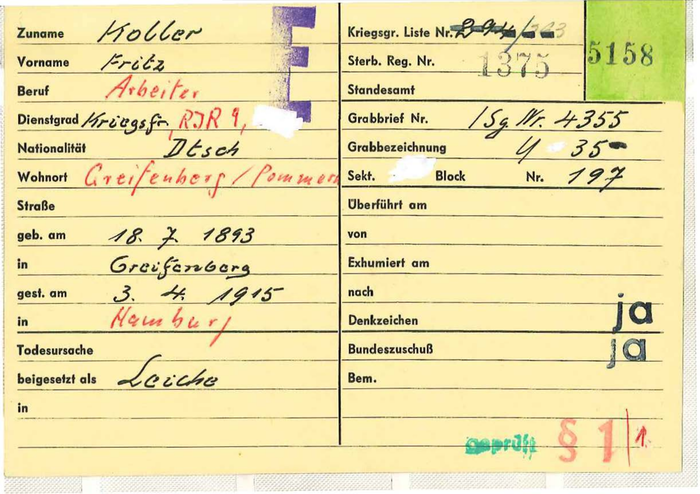 Zuname Koller
Vorname Fritz
Beruf Arbeiter
Dienstgrad Kriegsfr., RJR 9,
Nationalität Dtsch
Wohnort Greifenberg / Pommern
Straße
geb. am 18. 7. 1893
in Greifenberg
gest. am 3. 4. 1915
in Hamburg
Todesursache
beigesetzt als Leiche
in
Kriegsgr. Liste Nr.
Sterb. Reg. Nr. 1375
5158
Standesamt
Grabbrief Nr. Nr. 4355
Grabbezeichnung 35
Sekt. Block Nr. 197
Überführt am
von
Exhumiert am
nach
Denkzeichen ja
Bundeszuschuß ja
Bem.
geprüft § 1 / 1.